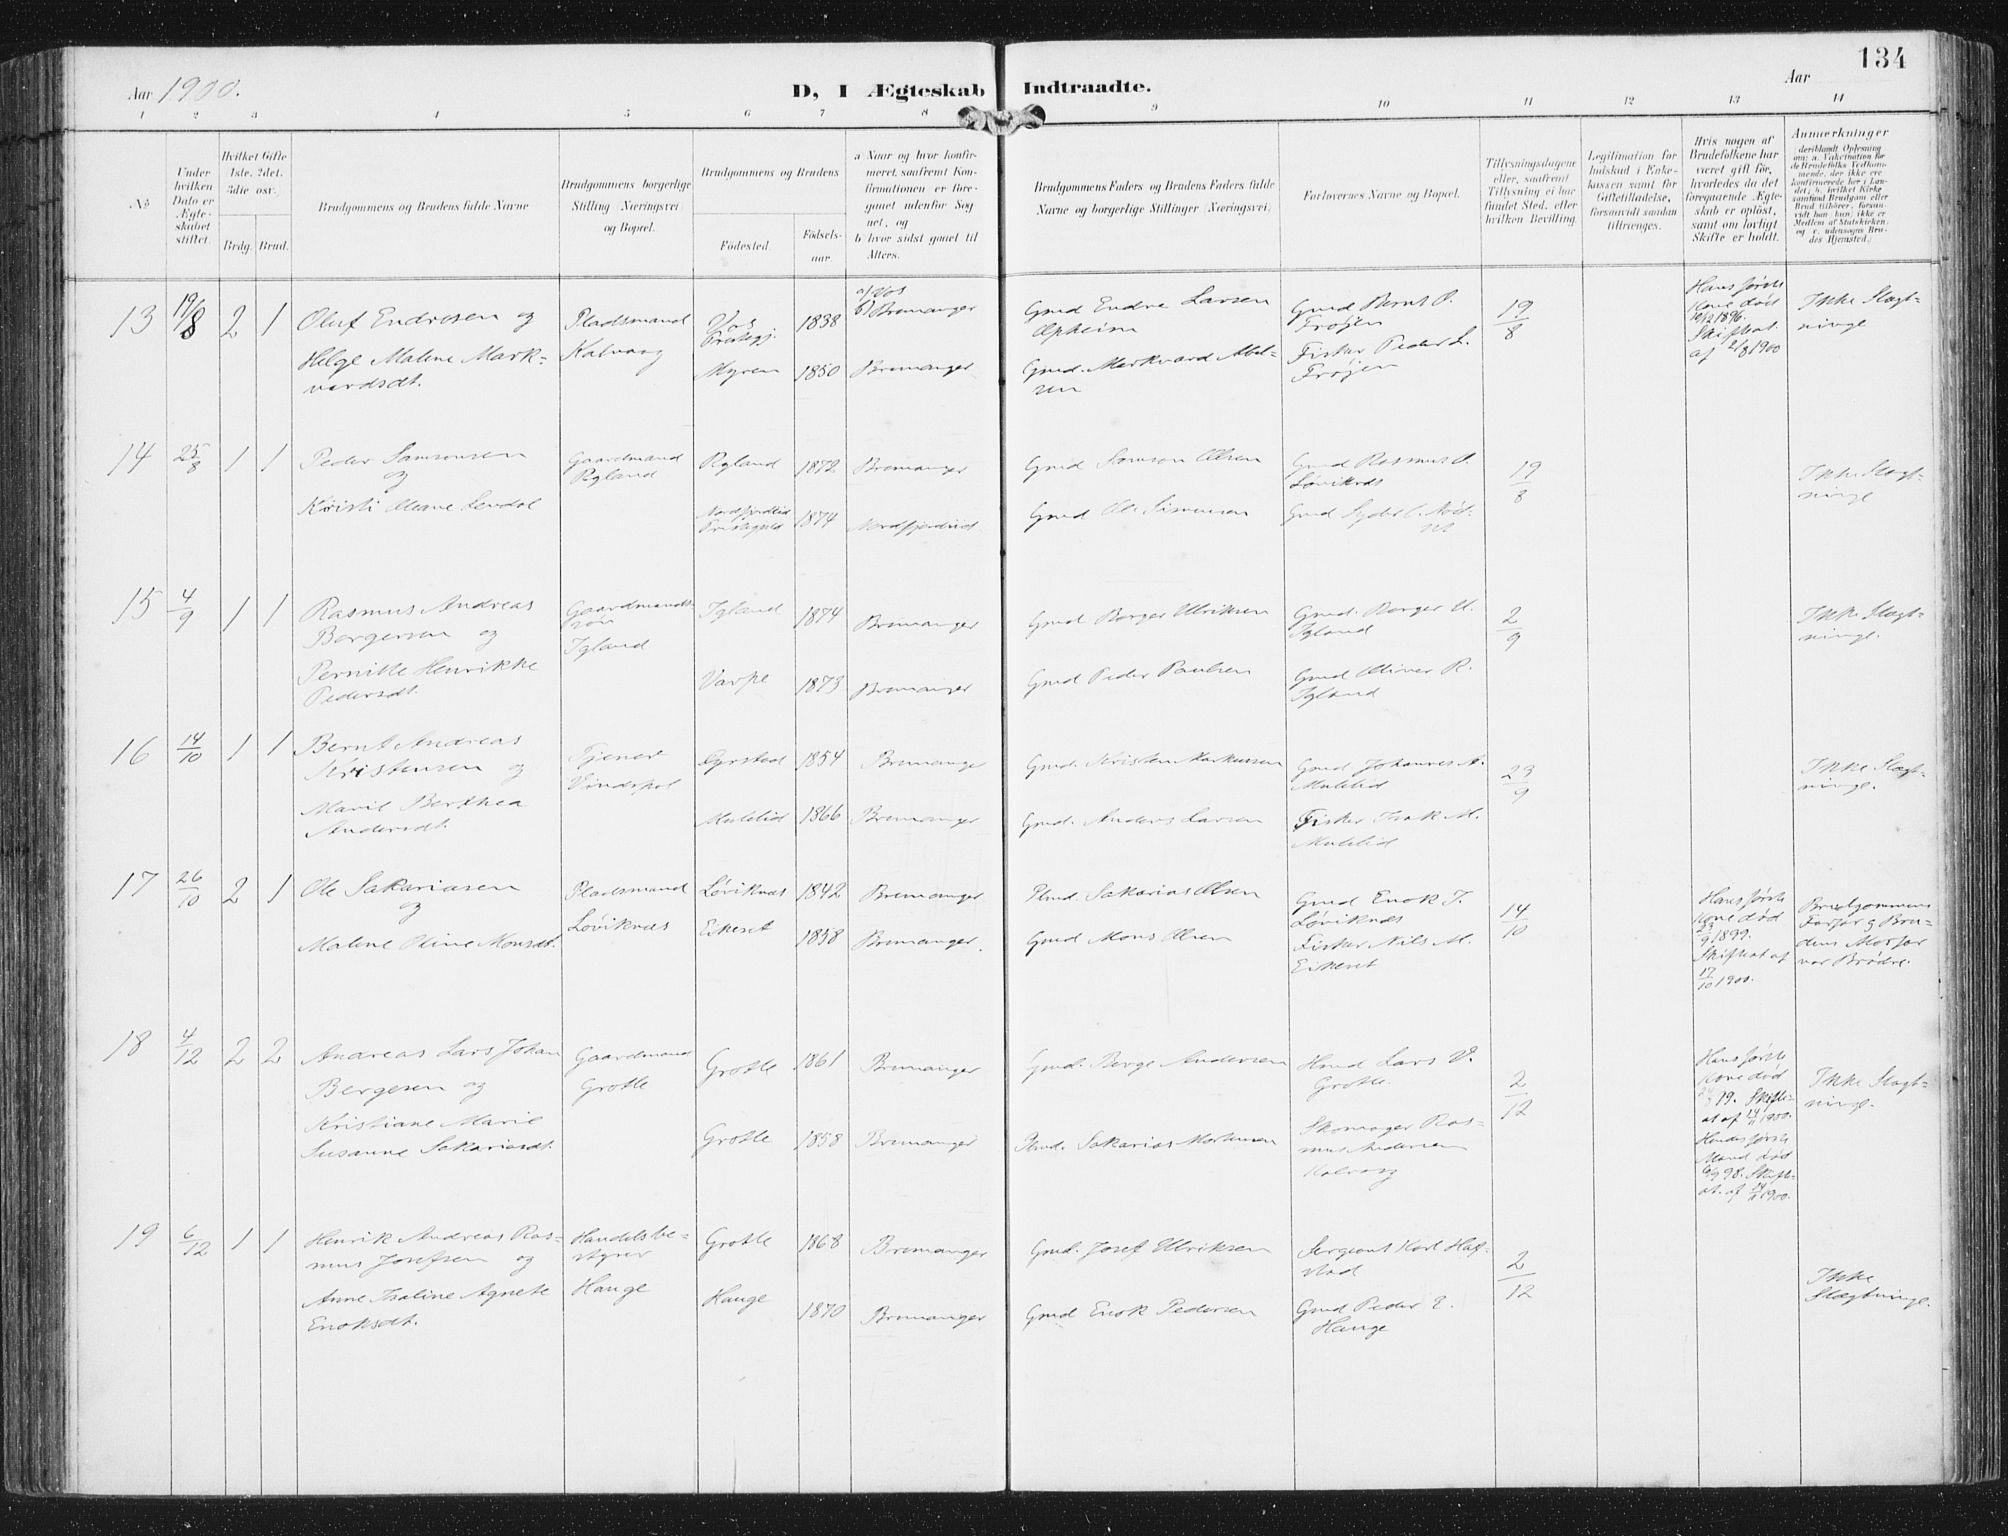 134
Aar 1900. D, I Ægteskab Indtraadte. Aar
1 2 3 4 5 6 7 8 9 10 11 12 13 14
No
Under hvilken Dato er Ægteskabet stiftet.
Hvilket Gifte 1ste. 2det. 3die osv.
Brdg. Brud.
Brudgommens og Brudens fulde Navne
Brudgommens borgerlige Stilling (Næringsvei) og Bopæl.
Brudgommens og Brudens
Födested.
Födsels-aar
a) Naar og hvor konfirmeret, saafremt Konfirmationen er foregaaet udenfor Sognet, og
b) hvor sidst gaaet til Alters.
Brudgommens Faders og Brudens Faders fulde Navne og borgerlige Stillinger (Næringsvei)
Forlovernes Navne og Bopæl.
Tillysningsdagene eller, saafremt Tillysning ei har fundet Sted, efter hvilken Bevilling.
Legitimation for Indskud i Enkekassen samt for Giftetilladelse, forsaavidt saadan tiltrænges.
Hvis nogen af Brudefolkene har været gift för, hvorledes da det foregaaende Ægteskab er oplöst, samt om lovligt Skifte er holdt.
Anmærkninger
13 19/8 2 1 Oluf Endresen og
Helge Malene Mark-
vardsdt.
Pladsmand
Kalvaag
Vos
Prestegj.
1838
Myren 1850
a) Vos
b) Bremanger
Bremanger
Gmd Endre Larsen
Opheim
Gmd. Markvard Abel-
sen
Gmd Bernt O.
Frøyen
Fisker Peder L.
Frøyen
19/8
Hans første
Kone død
10/2 1896.
Skifteat.
af 2/8 1900
Ikke Slægt-
ninge
14 25/8 1 1 Peder Samsonsen
og
Kristi Oleane Lendol
Gaardmand
Ryland
Ryland 1872 Bremanger
Nordfjordeid
Prestegjeld 1874 Nordfjordeid
Gmd Samson Olsen
Gmd Ole Simonsen
Gmd Rasmus O.
Løviknes
19/8
Ikke Slægt-
ninge
15 4/9 1 1 Rasmus Andreas
Børgersen og
Pernille Henrikke
Pedersdt.
Gaardmands-
søn
Igland
Igland 1874 Bremanger
Varpe 1873 Bremanger
Gmd Børger Ulriksen
Gmd Peder Paulsen
Gmd. Børger U.
Igland
Gmd Oliver R.
Igland
2/9
Ikke Slægt-
ninge.
16 14/10 1 1 Bernt Andreas
Kristensen og
Marie Berthea
Andersdt.
Tjener
Vindspol
Dyrstad 1854 Bremanger
Mulelid 1866 Bremanger
Gmd. Kristen Markussen
Gmd. Anders Larsen
Gmd Johannes A.
Mulelid
Fisker Isak M.
Mulelid
23/9
Ikke Slægt-
ninge.
17 26/10 2 1 Ole Sakariasen
og
Malene Oline Monsdt.
Pladsmand
Løviknes
Løviknes 1842 Bremanger
Eikeset 1858 Bremanger.
Pmd. Sakarias Olsen
Gmd Mons Olsen
Gmd Enok J.
Løviknes
Fisker Nils M.
Eikeset
14/10
Hans første
Kone død
23/9 1899.
Skifteat af
17/10 1900.
Brudgommens
Farfar og Bru-
dens Morfar
var Brødre.
18 4/12 2 2 Andreas Lars Johan
Bergesen og
Kristiane Marie
Susanne Sakariasdt.
Gaardmand
Grotle
Grotle 1861 Bremanger
Grotle 1858 Bremanger
Gmd. Berge Andersen
Pmd. Sakarias Mortensen
Hmd Lars V.
Grotle.
Skomager Ras-
mus Andersen
Kalvaag
2/12
Hans første
Kone død
Skifte-
at af 14/11 1900.
Hendes første
Mand død
6/9 98. Skifte-
at. af 14/11 1900.
Ikke Slægt-
ninge.
19 6/12 1 1 Henrik Andreas Ras-
mus Josefsen og
Anne Isaline Agnete
Enoksdt.
Handelsbe-
styrer
Hauge
Grotle 1868 Bremanger
Hauge 1870 Bremanger
Gmd. Josef Ulriksen
Gmd Enok Pedersen
Sergeant Karl Haf-
stad
Gmd Peder E.
Hauge
2/12
Ikke
Slægtninge.